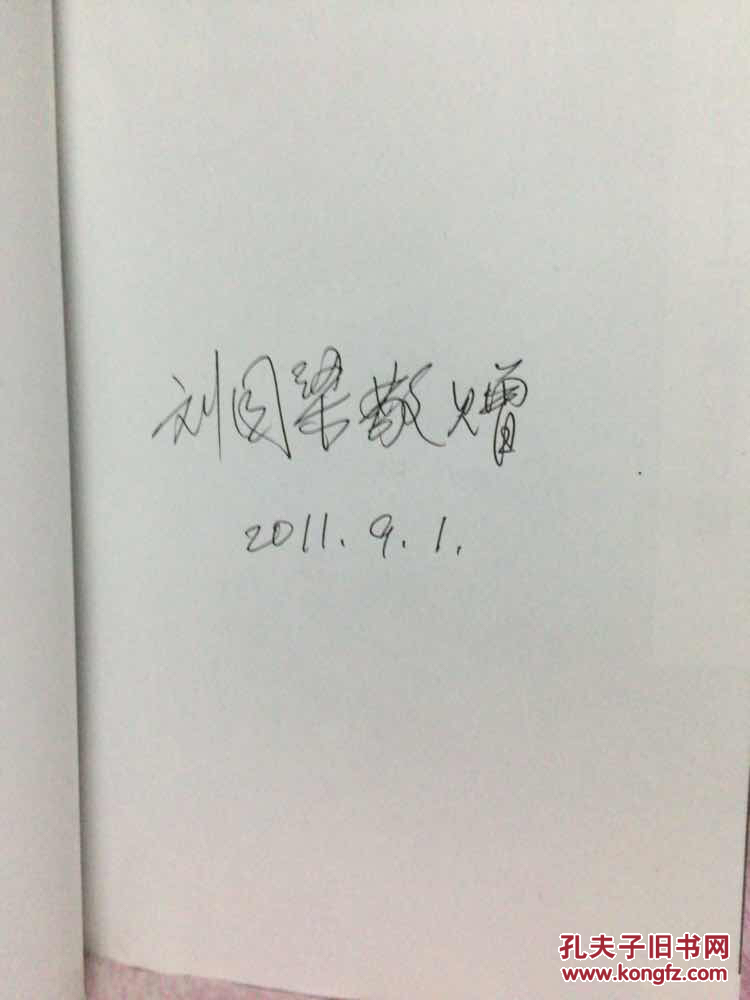 刘国梁敬赠
2011.9.1.
孔夫子旧书网
www.kongfz.com